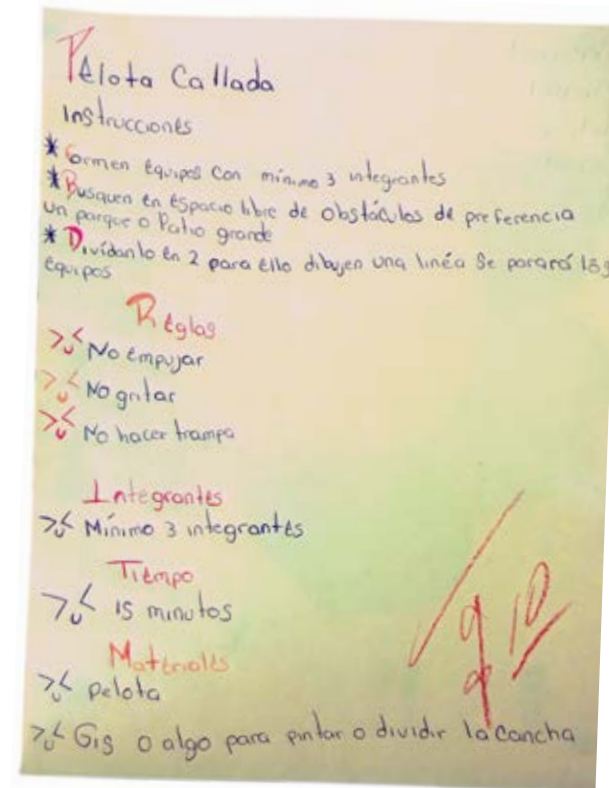 Pelota Callada
Instrucciones
* Formen equipos con mínimo 3 integrantes
* Busquen en espacio libre de obstáculos de preferencia
un parque o Patio grande
* Divídanlo en 2 para ello dibujen una linéa Se pararó lós
equipos
Reglas
No empujar
No gritar
No hacer trampa
Integrantes
Mínimo 3 integrantes
Tiempo
15 minutos
Materiales
pelota
Gis o algo para pintar o dividir la cancha
10